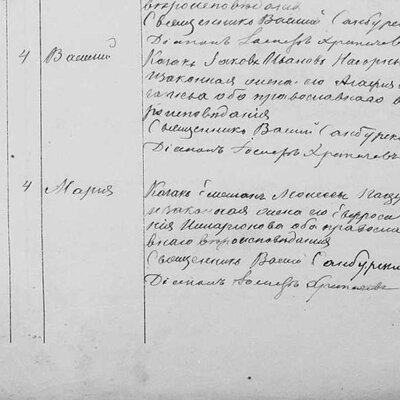 вероисповедания
Священникъ Василій Самбурск
Діаконъ Іосифъ Хрипачевъ
4 Василій Козакъ Іаковъ Ивановъ Нагорн
и законная жена его Агафія
обо православнаго в
роисповедания
Священникъ Василій Самбурск
Діаконъ Іосифъ Хрипачевъ
4 Мария Козакъ Моисеевъ
и законная жена его Евфроси
ния обо правосла
внаго вероисповедания
Священникъ Василій Самбурск
Діаконъ Іосифъ Хрипачевъ